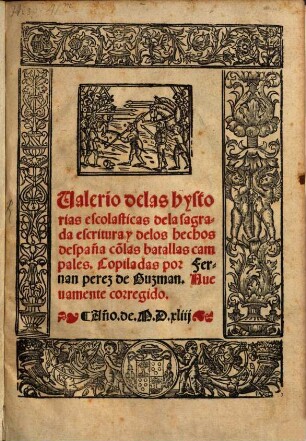 Valerio delas hysto
rias escolasticas dela sagra-
da escritura. y delos hechos
despaña cõ las batallas cam
pales. Copiladas por Fer-
nan perez de Guzman. Nue
uamente corregido.
Año. de. M. D. xliij